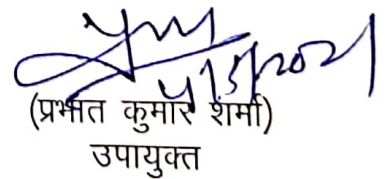 4/5/2021
(प्रभात कुमार शर्मा)
उपायुक्त